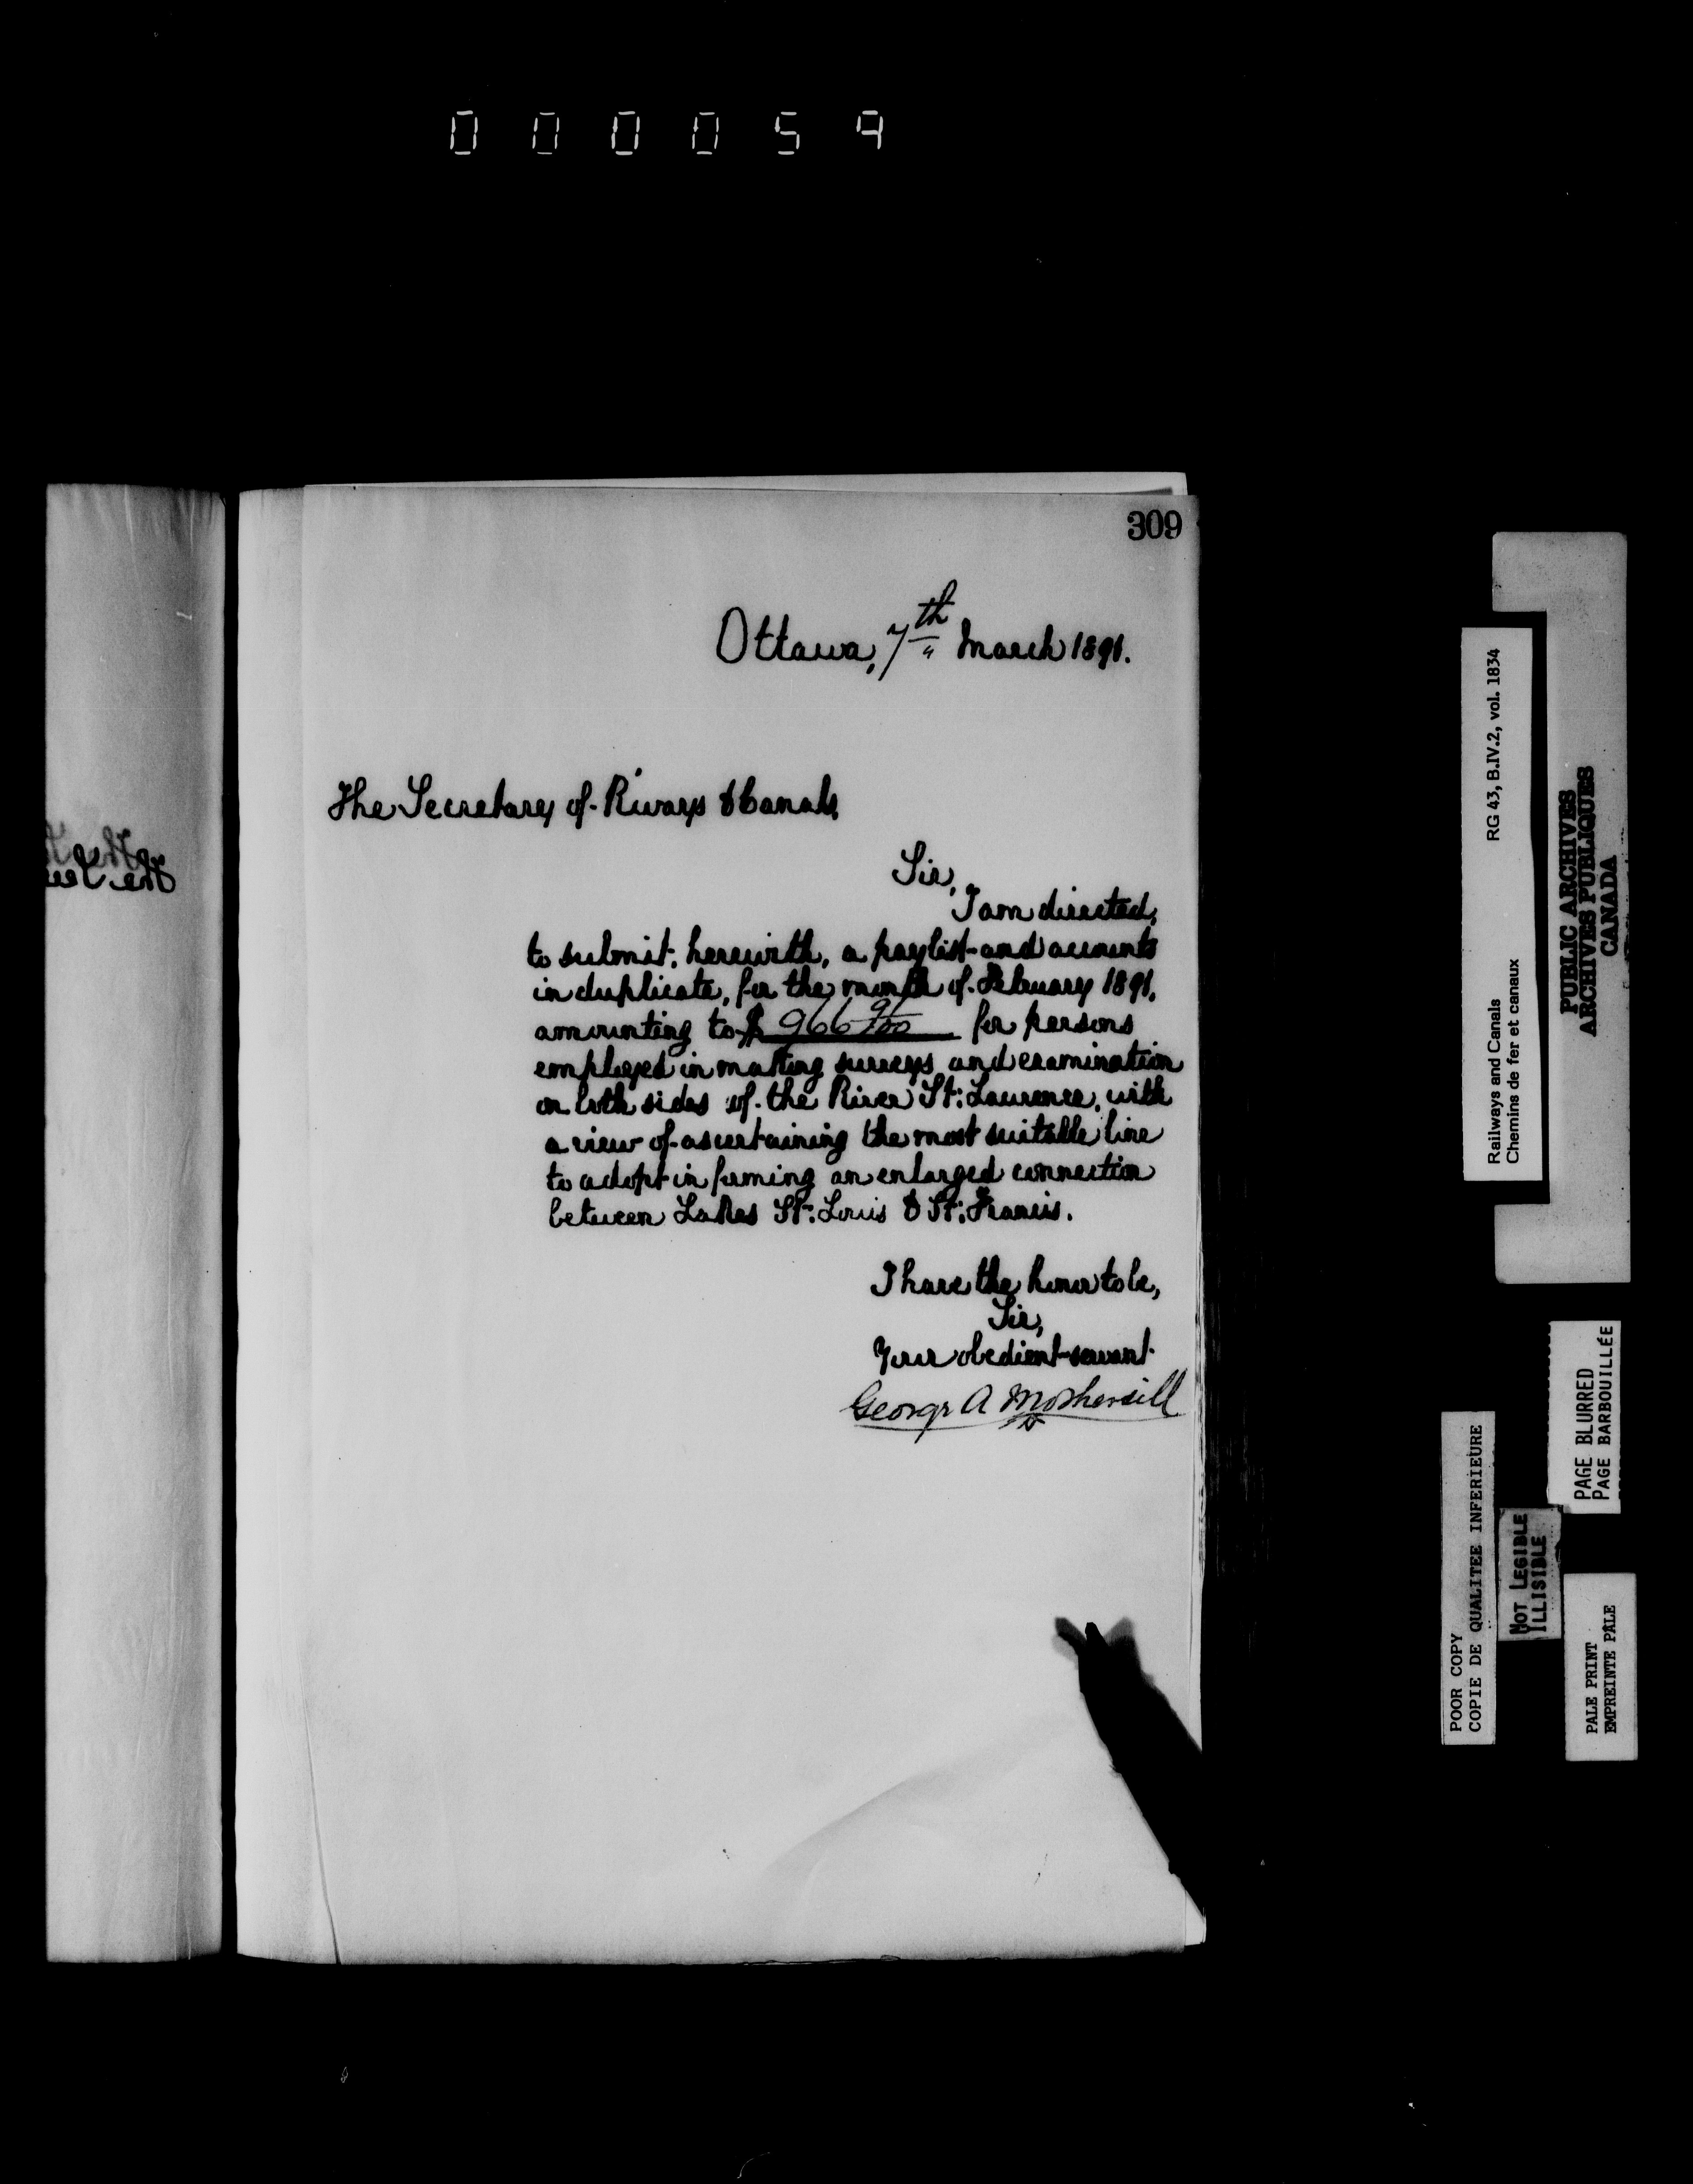 000059
309
Ottawa, 7th March 1891.
The Secretary of Rways & Canals,
Sir,
I am directed,
to submit, herewith, a paylist and accounts
in duplicate, for the month of February 1891,
amounting to $ 966 91/100 for persons
employed in making surveys and examination
on both sides of the River St: Lawrence, with
a view of ascertaining the most suitable line
to adopt in forming an enlarged connection
between Lakes St: Louis & St: Francis.
I have the honor to be,
Sir,
Your obedient servant
George A Mothersill
Railways and Canals RG 43, B.IV.2, vol. 1834
Chemins de fer et canaux
PUBLIC ARCHIVES
ARCHIVES PUBLIQUES
CANADA
PAGE BLURRED
PAGE BARBOUILLÉE
POOR COPY
COPIE DE QUALITEE INFERIEURE
NOT LEGIBLE
ILLISIBLE
PALE PRINT
EMPREINTE PÂLE